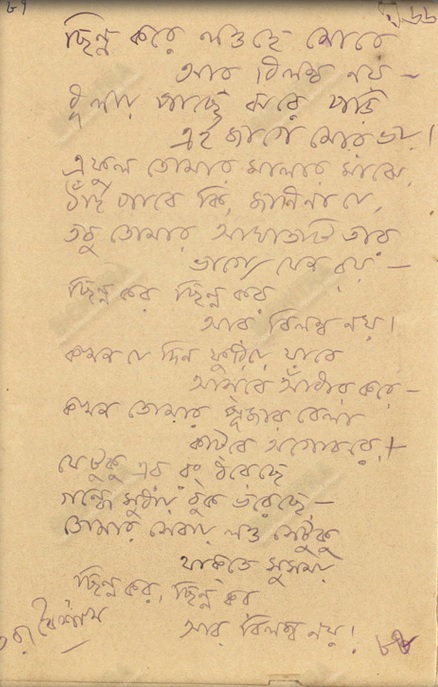 ৮৭
ছিন্ন করে লও হে মোরে
আর বিলম্ব নয় —
ধূলায় পাছে ঝরে পড়ি
এই জাগে মোর ভয়।
এ ফুল তোমার মালার মাঝে
ঠাঁই পাবে কি, জানি না যে,
তবু তোমার আঘাতটি তার
ভাগ্যে যেন রয় —
ছিন্ন কর ছিন্ন কর
আর বিলম্ব নয়।
কখন যে দিন ফুরিয়ে যাবে
আসবে আঁধার করে —
কখন তোমার পূজার বেলা
কাটবে অগোচরে।
যেটুকু এর রং ধরেছে
গন্ধে সুধায় বুক ভরেছে —
তোমার সেবায় লও সেটুকু
থাকতে সুসময়
ছিন্ন কর, ছিন্ন কর
আর বিলম্ব নয়!
বৈশাখ